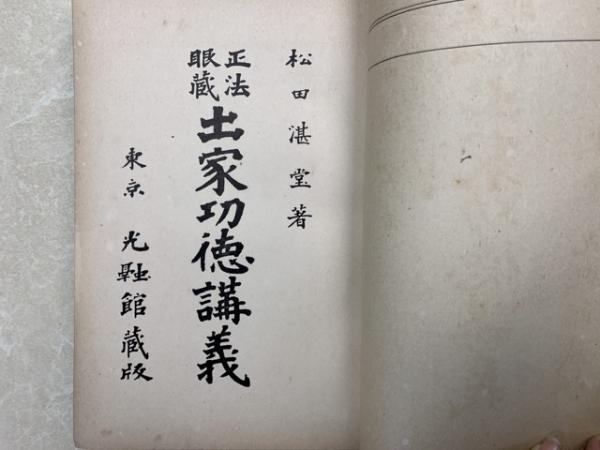 松田湛堂著
正法眼蔵
出家功徳講義
東京 光融館蔵版